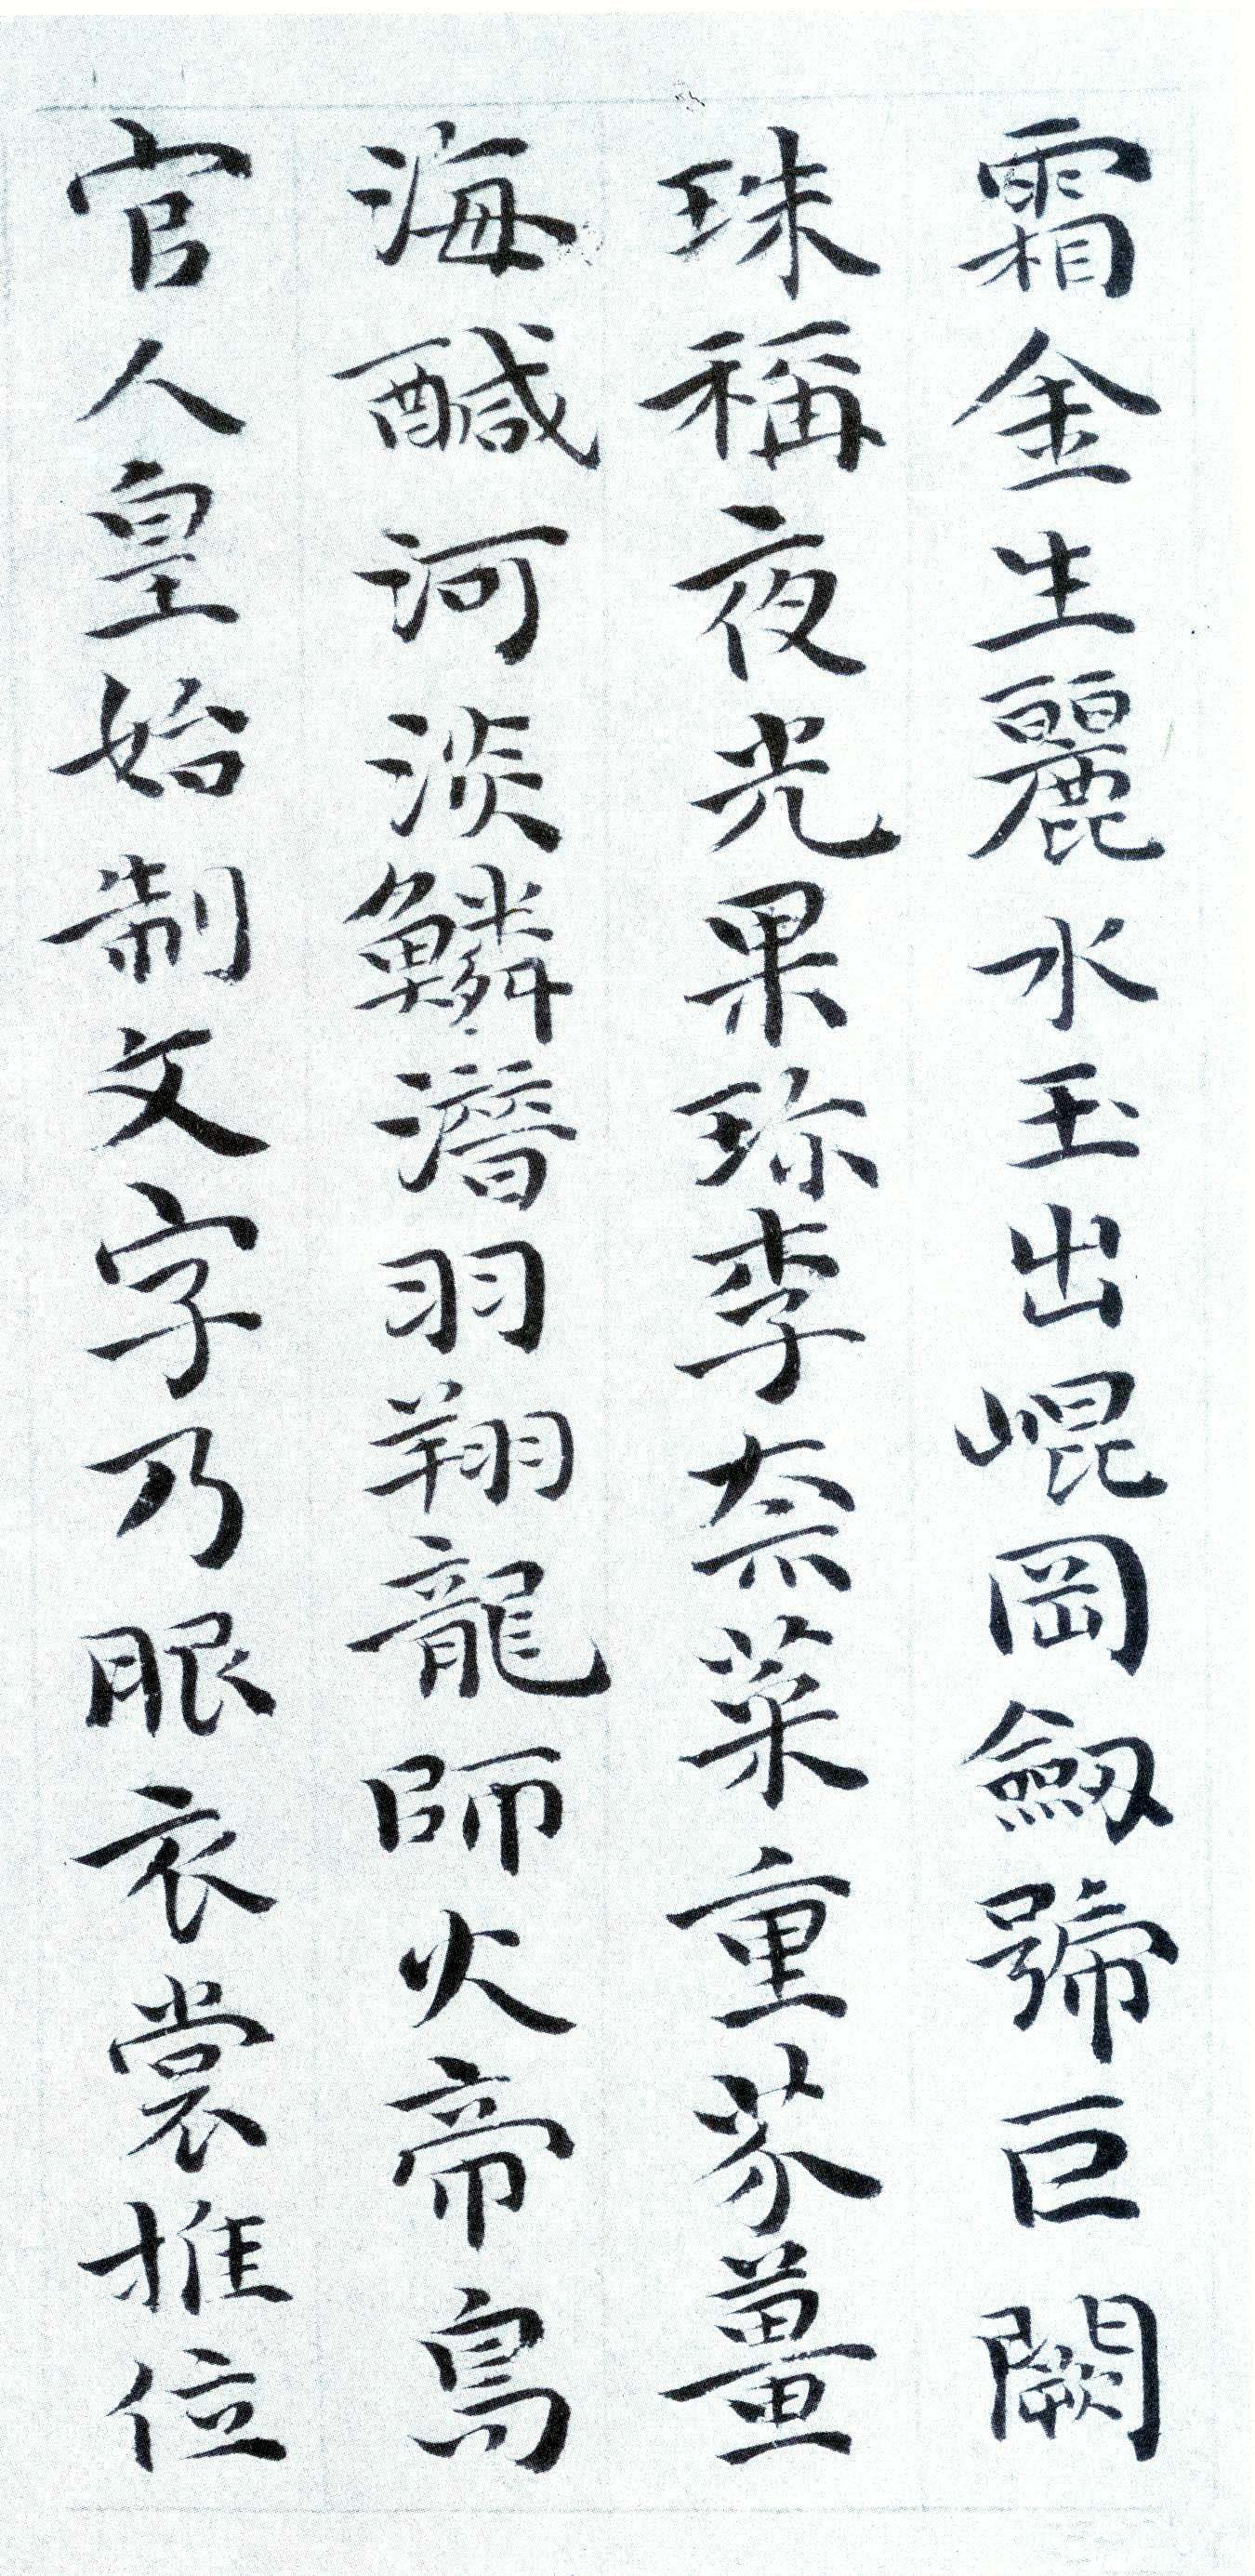 霜金生麗水玉出崐岡劒號巨闕
珠稱夜光果珎李柰菜重芥薑
海醎河淡鱗潛羽翔龍師火帝鳥
官人皇始制文字乃服衣裳推位